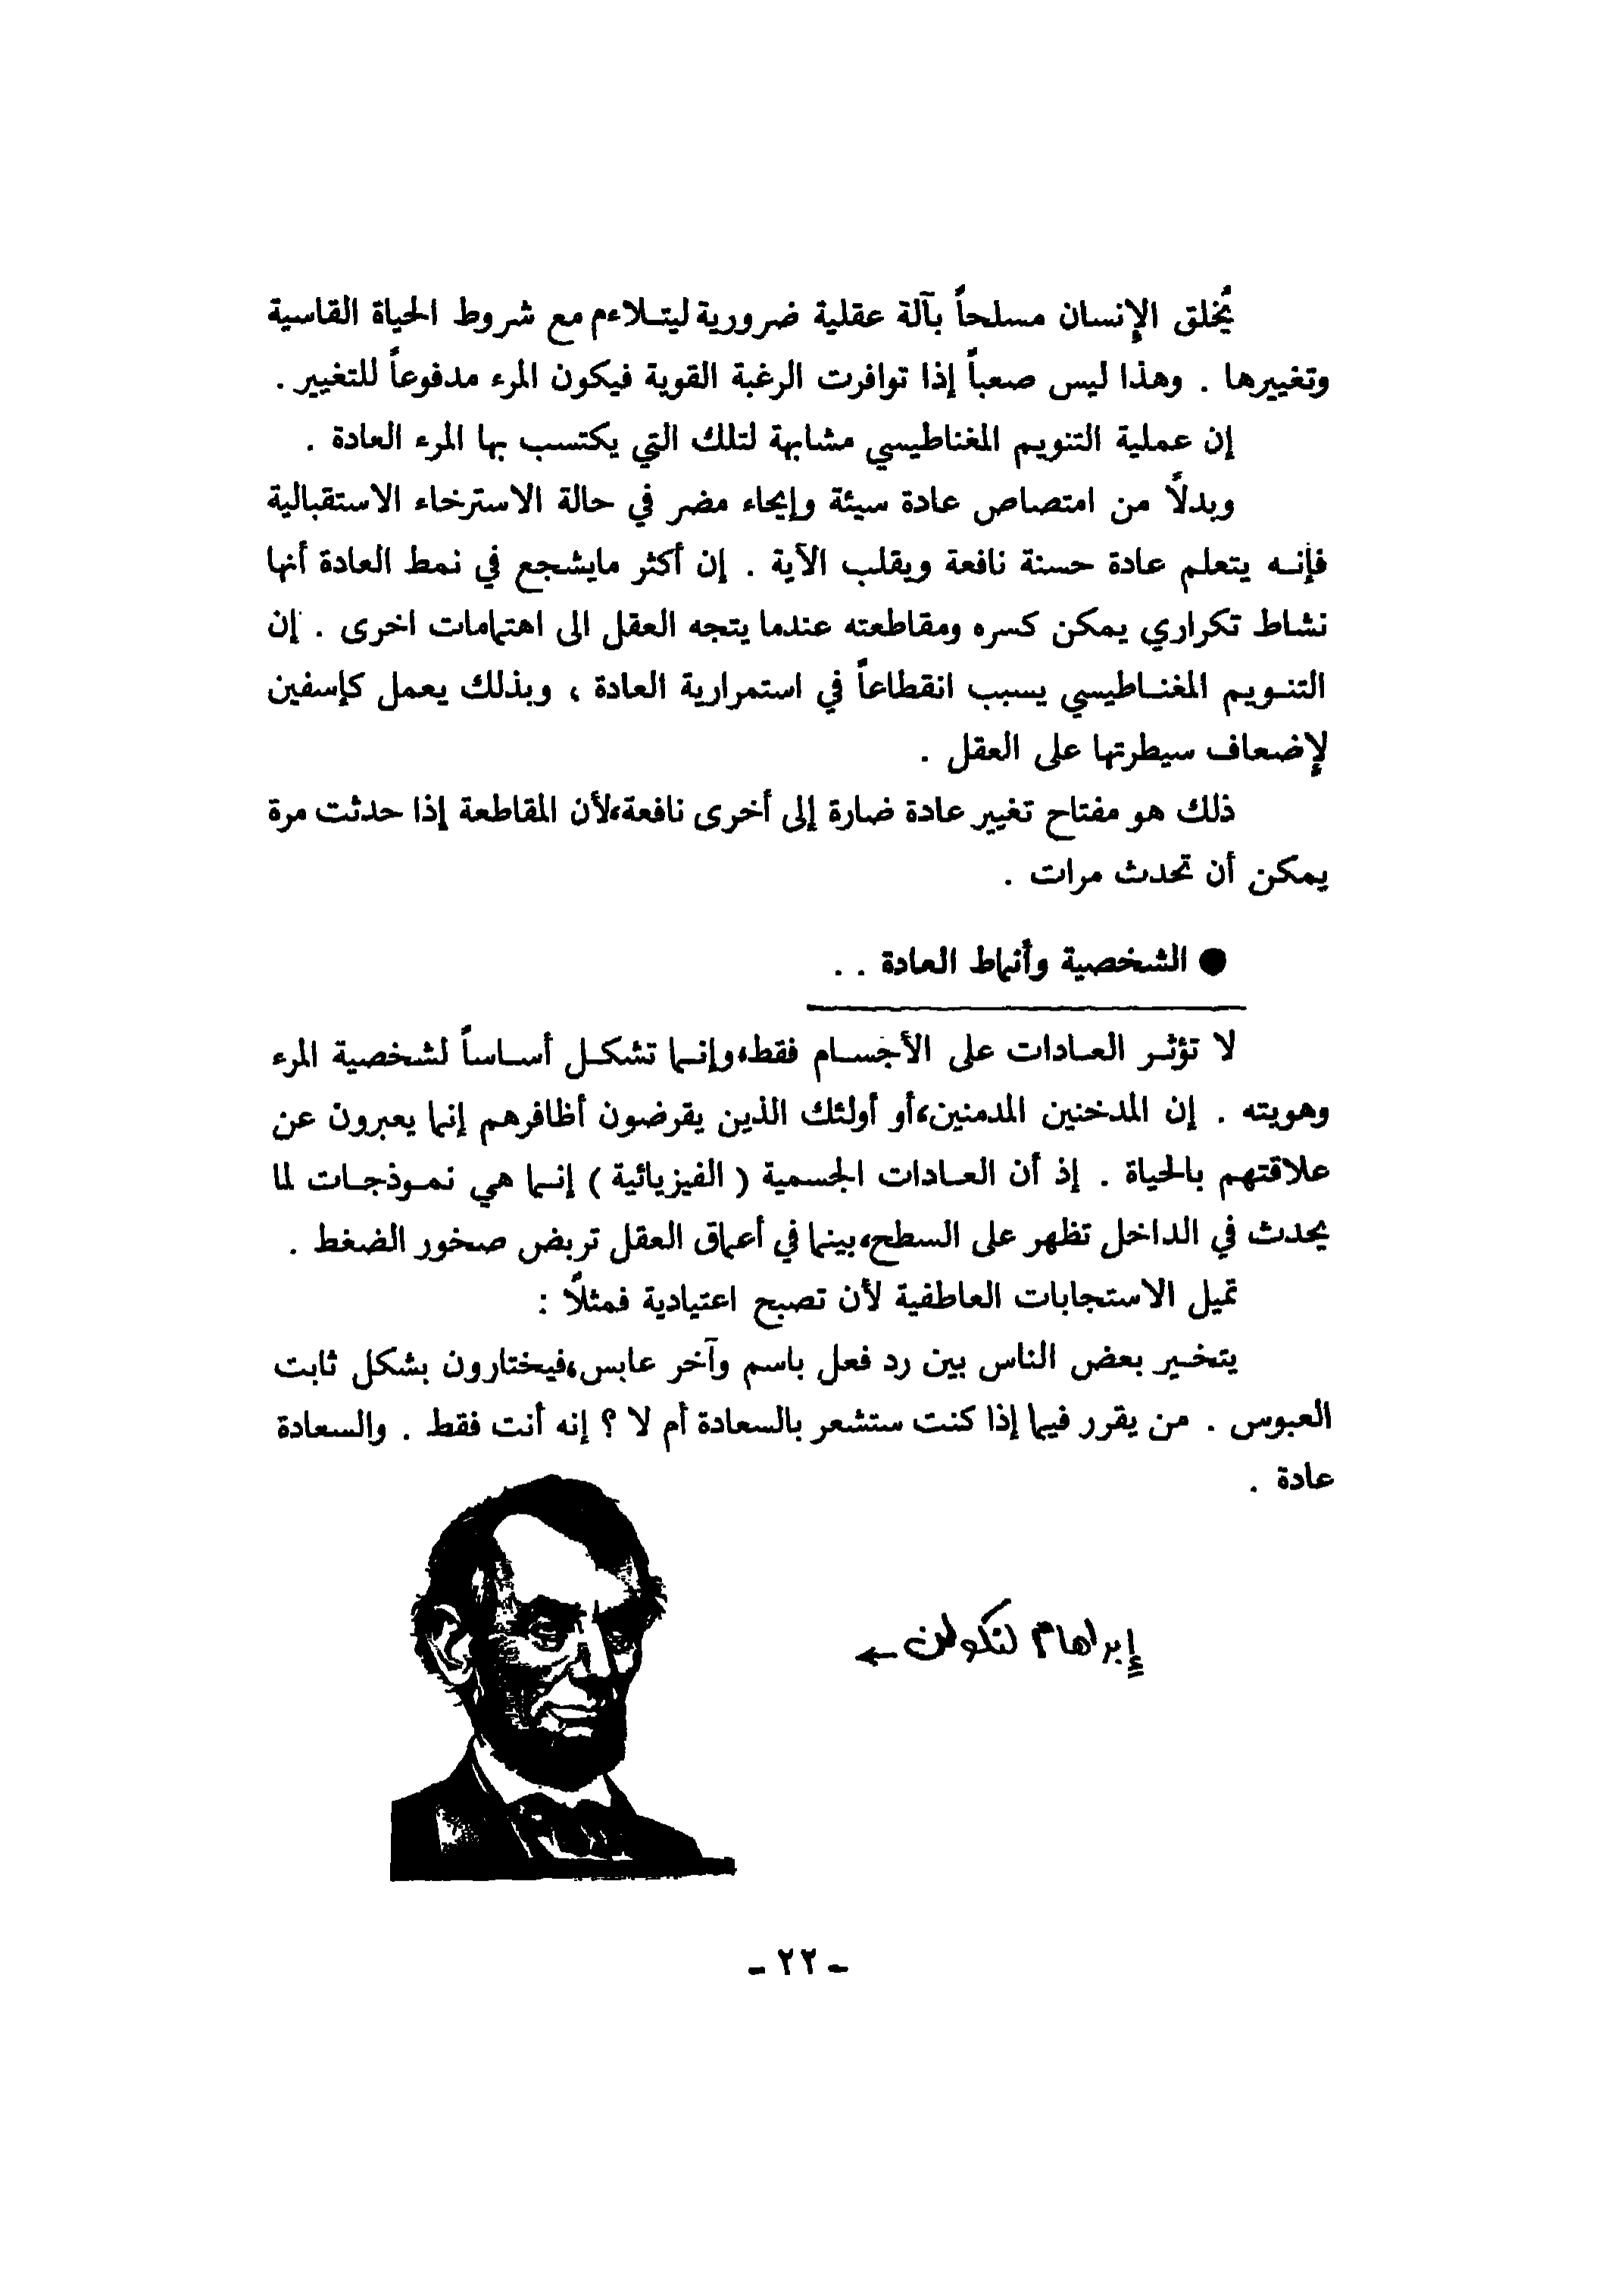 يُخلق الإنسان مسلحاً بآلة عقلية ضرورية ليتلاءم مع شروط الحياة القاسية
وتغييرها . وهذا ليس صعباً إذا توافرت الرغبة القوية فيكون المرء مدفوعاً للتغيير .
إن عملية التنويم المغناطيسي مشابهة لتلك التي يكتسب بها المرء العادة .
وبدلاً من امتصاص عادة سيئة وإيحاء مضر في حالة الاسترخاء الاستقبالية
فإنه يتعلم عادة حسنة نافعة ويقلب الآية . إن أكثر مايشجع في نمط العادة أنها
نشاط تكراري يمكن كسره ومقاطعته عندما يتجه العقل الى اهتمامات اخرى . إن
التنويم المغناطيسي يسبب انقطاعاً في استمرارية العادة ، وبذلك يعمل كإسفين
لإضعاف سيطرتها على العقل .
ذلك هو مفتاح تغيير عادة ضارة إلى أخرى نافعة،لأن المقاطعة إذا حدثت مرة
يمكن أن تحدث مرات .
● الشخصية وأنماط العادة . .
لا تؤثر العادات على الأجسام فقط،وإنما تشكل أساساً لشخصية المرء
وهويته . إن المدخنين المدمنين،أو أولئك الذين يقرضون أظافرهم إنما يعبرون عن
علاقتهم بالحياة . إذ أن العادات الجسمية ( الفيزيائية ) إنما هي نموذجات لما
يحدث في الداخل تظهر على السطح،بينما في أعماق العقل تربض صخور الضغط .
تميل الاستجابات العاطفية لأن تصبح اعتيادية فمثلاً :
يتخير بعض الناس بين رد فعل باسم وآخر عابس،فيختارون بشكل ثابت
العبوس . من يقرر فيما إذا كنت ستشعر بالسعادة أم لا ؟ إنه أنت فقط . والسعادة
عادة .
إبراهام لنكولن ←
- ٢٢ -